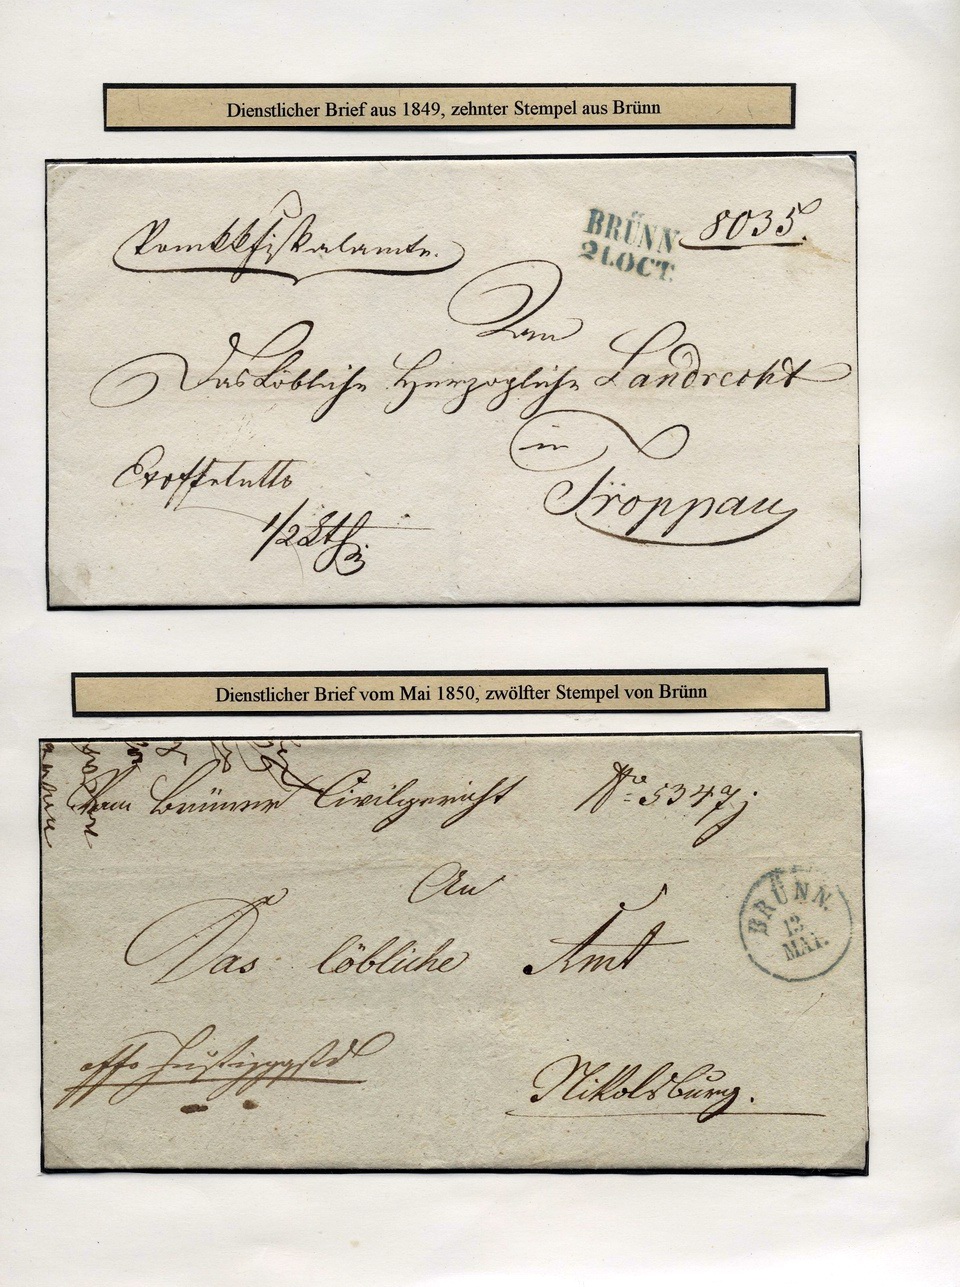 Dienstlicher Brief aus 1849, zehnter Stempel aus Brünn
Vom kk Fiskalamte.
BRÜNN
21.OCT.
8035.
An
Das Löbliche Herzogliche Landrecht
in
Troppau
1/2 Lth
Dienstlicher Brief vom Mai 1850, zwölfter Stempel von Brünn
Vom Brünner Civilgericht
Nro 5347
An
Das löbliche Amt
BRÜNN.
12.
MAI.
Nikolsburg.